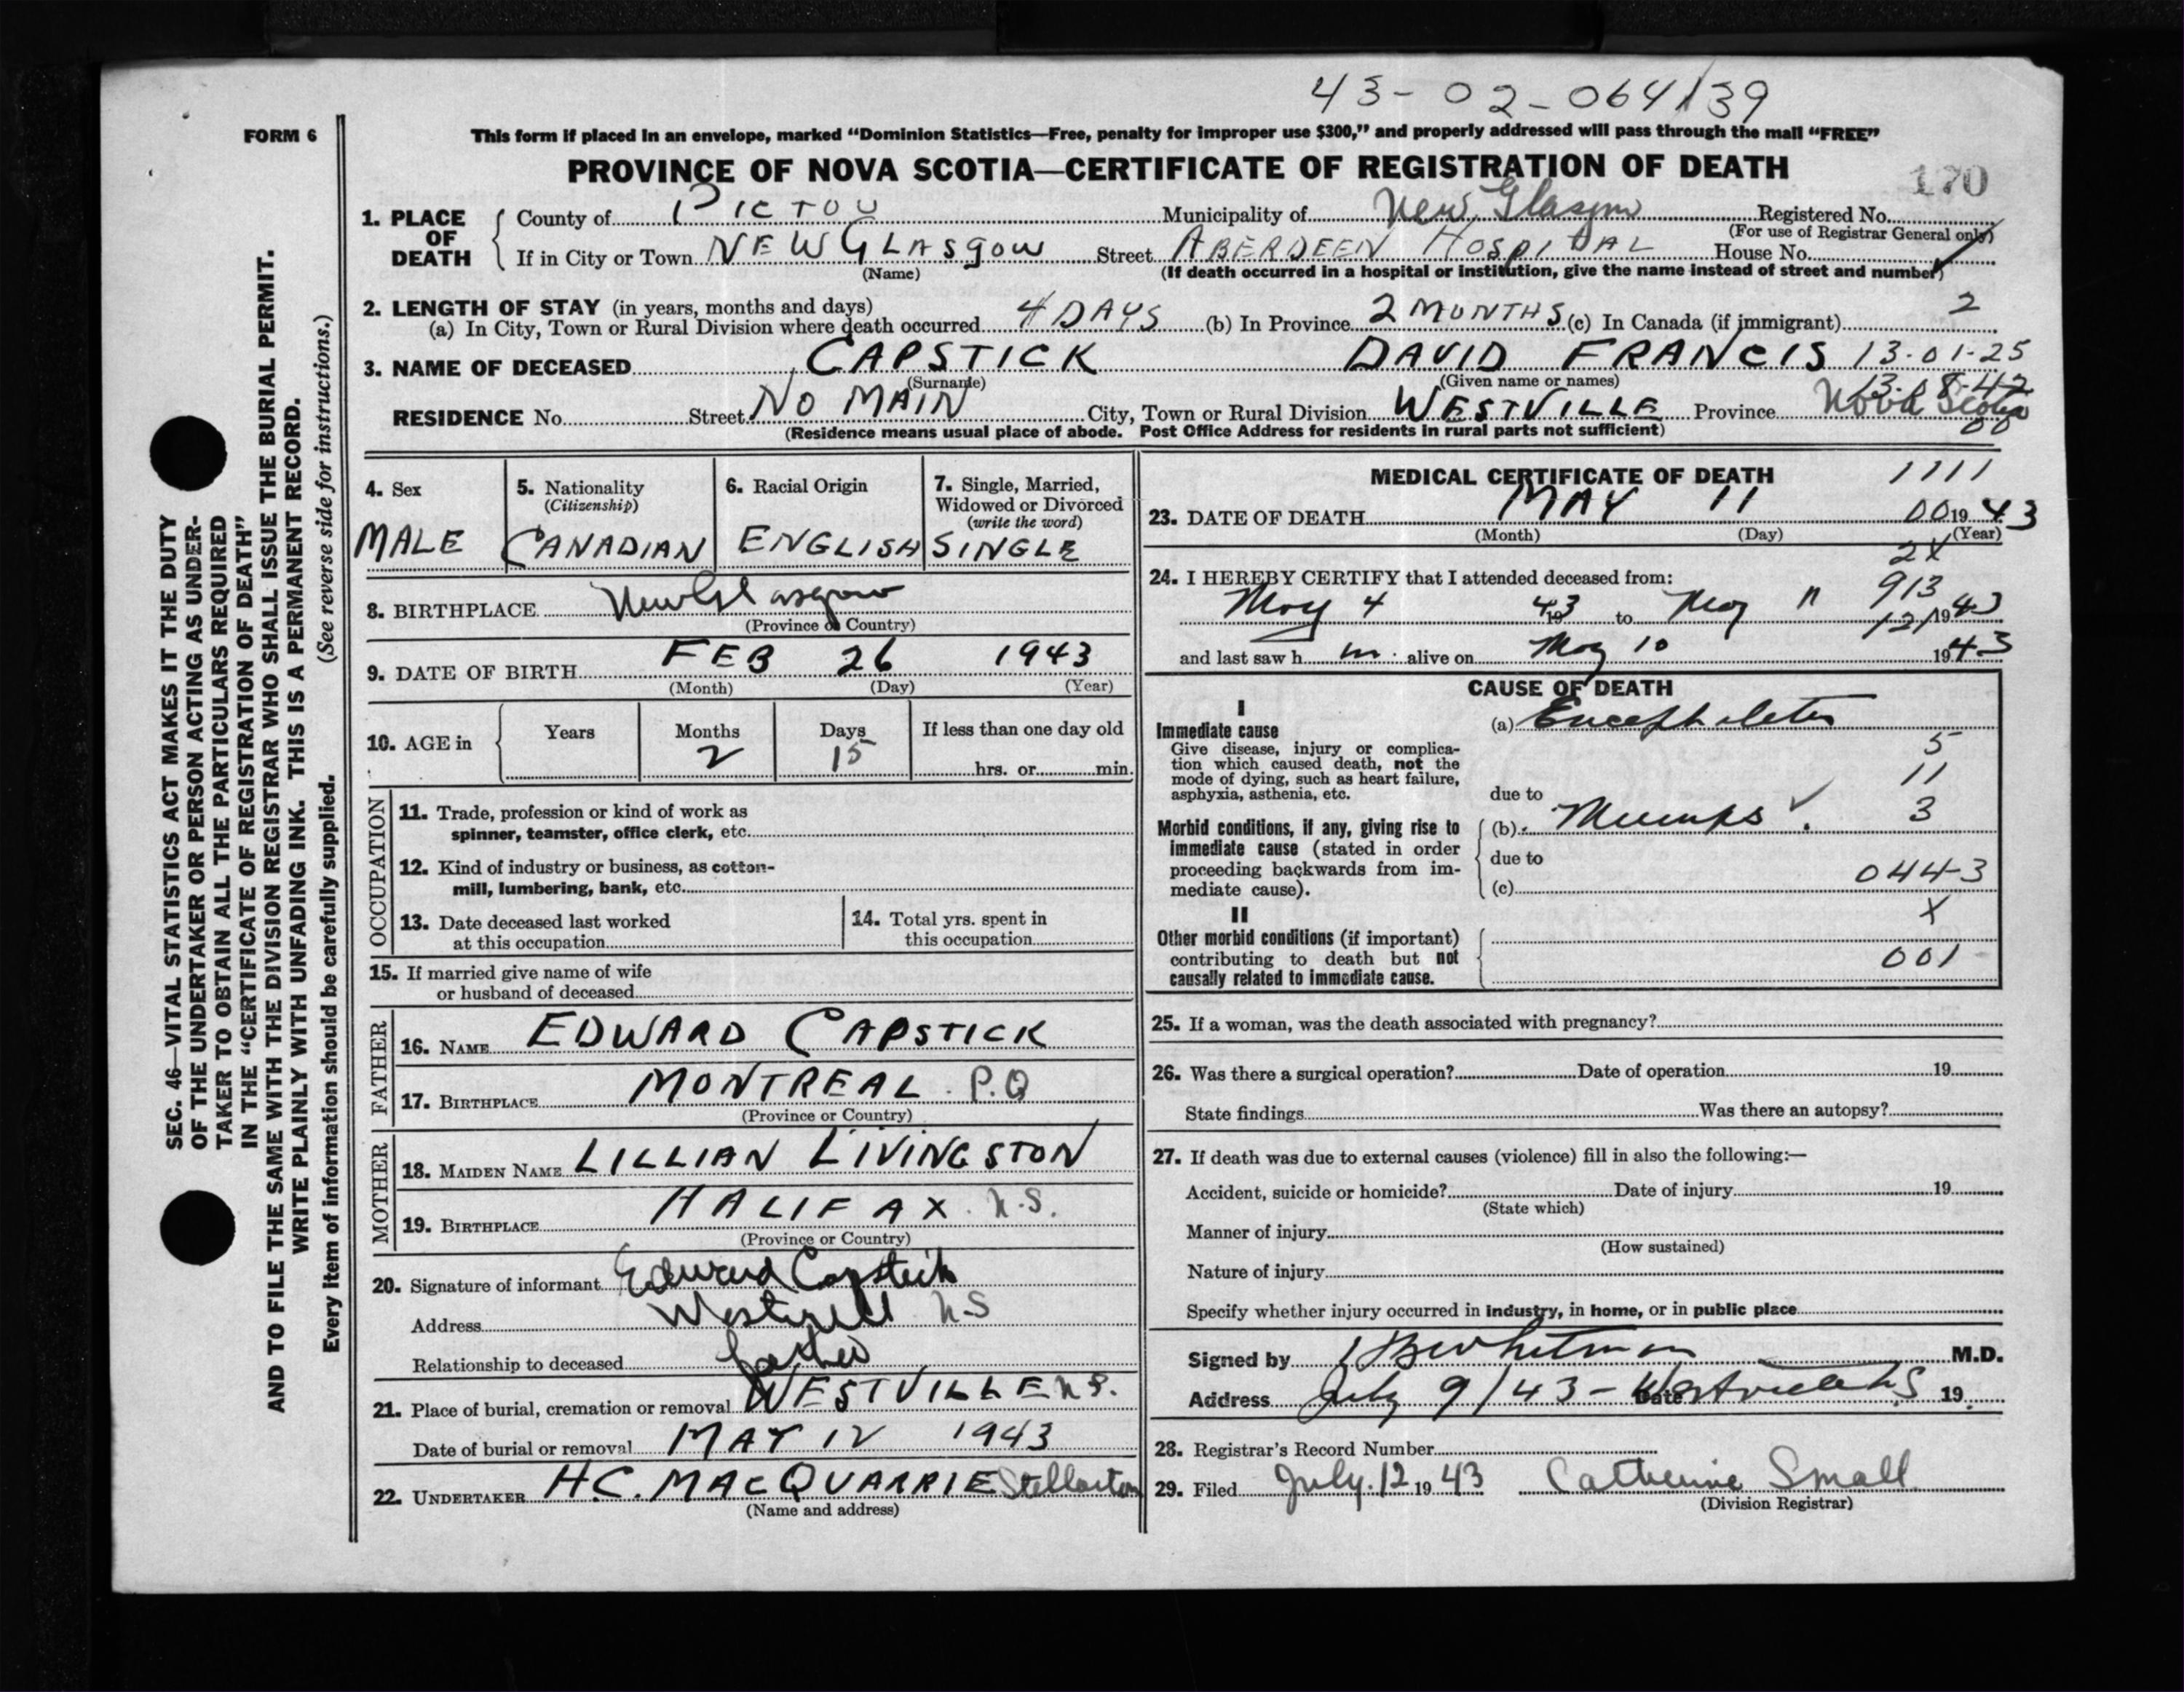 43-02-064139
FORM 6
This form if placed in an envelope, marked "Dominion Statistics—Free, penalty for improper use $300," and properly addressed will pass through the mail "FREE"
PROVINCE OF NOVA SCOTIA—CERTIFICATE OF REGISTRATION OF DEATH
170
1. PLACE OF DEATH
County of PICTOU Municipality of New Glasgow Registered No.
(For use of Registrar General only)
If in City or Town NEW GLASGOW Street ABERDEEN HOSPITAL House No.
(Name) (If death occurred in a hospital or institution, give the name instead of street and number)
2. LENGTH OF STAY (in years, months and days)
(a) In City, Town or Rural Division where death occurred 4 DAYS (b) In Province 2 MONTHS (c) In Canada (if immigrant) 2
3. NAME OF DECEASED CAPSTICK DAVID FRANCIS 13-01-25
(Surname) (Given name or names)
RESIDENCE No. Street NO MAIN City, Town or Rural Division WESTVILLE Province Nova Scotia
(Residence means usual place of abode. Post Office Address for residents in rural parts not sufficient)
4. Sex
MALE
5. Nationality
(Citizenship)
CANADIAN
6. Racial Origin
ENGLISH
7. Single, Married,
Widowed or Divorced
(write the word)
SINGLE
8. BIRTHPLACE New Glasgow
(Province or Country)
9. DATE OF BIRTH FEB 26 1943
(Month) (Day) (Year)
10. AGE in
Years Months Days If less than one day old
2 15
hrs. or min.
OCCUPATION
11. Trade, profession or kind of work as
spinner, teamster, office clerk, etc.
12. Kind of industry or business, as cotton-
mill, lumbering, bank, etc.
13. Date deceased last worked
at this occupation
14. Total yrs. spent in
this occupation
15. If married give name of wife
or husband of deceased
FATHER
16. NAME EDWARD CAPSTICK
17. BIRTHPLACE MONTREAL P.Q
(Province or Country)
MOTHER
18. MAIDEN NAME LILLIAN LIVINGSTON
19. BIRTHPLACE HALIFAX. N.S.
(Province or Country)
20. Signature of informant Edward Capstick
Address Westville NS
Relationship to deceased father
21. Place of burial, cremation or removal WESTVILLE N.S.
Date of burial or removal MAY 12 1943
22. UNDERTAKER H.C. MACQUARRIE Stellarton
(Name and address)
MEDICAL CERTIFICATE OF DEATH
1111
23. DATE OF DEATH MAY 11 00 1943
(Month) (Day) (Year)
2X
24. I HEREBY CERTIFY that I attended deceased from:
913
May 4 1943 to May 11 121 1943
and last saw h im alive on May 10 1943
CAUSE OF DEATH
I
Immediate cause
Give disease, injury or complica-
tion which caused death, not the
mode of dying, such as heart failure,
asphyxia, asthenia, etc.
(a) Encephaletis
5
11
due to
Morbid conditions, if any, giving rise to
immediate cause (stated in order
proceeding backwards from im-
mediate cause).
(b) Mumps 3
due to
(c) 0443
X
II
Other morbid conditions (if important)
contributing to death but not
causally related to immediate cause.
001
25. If a woman, was the death associated with pregnancy?
26. Was there a surgical operation? Date of operation 19
State findings Was there an autopsy?
27. If death was due to external causes (violence) fill in also the following:—
Accident, suicide or homicide? Date of injury 19
(State which)
Manner of injury
(How sustained)
Nature of injury
Specify whether injury occurred in industry, in home, or in public place
Signed by Whitman M.D.
Address July 9/43 - Westville NS Date 19
28. Registrar's Record Number
29. Filed July. 12 1943 Catherine Small
(Division Registrar)
SEC. 46—VITAL STATISTICS ACT MAKES IT THE DUTY
OF THE UNDERTAKER OR PERSON ACTING AS UNDER-
TAKER TO OBTAIN ALL THE PARTICULARS REQUIRED
IN THE "CERTIFICATE OF REGISTRATION OF DEATH"
AND TO FILE THE SAME WITH THE DIVISION REGISTRAR WHO SHALL ISSUE THE BURIAL PERMIT.
WRITE PLAINLY WITH UNFADING INK. THIS IS A PERMANENT RECORD.
(See reverse side for instructions.)
Every item of information should be carefully supplied.